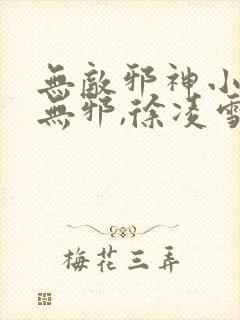 無敵邪神小
無邪,徐凌雪
梅花三弄